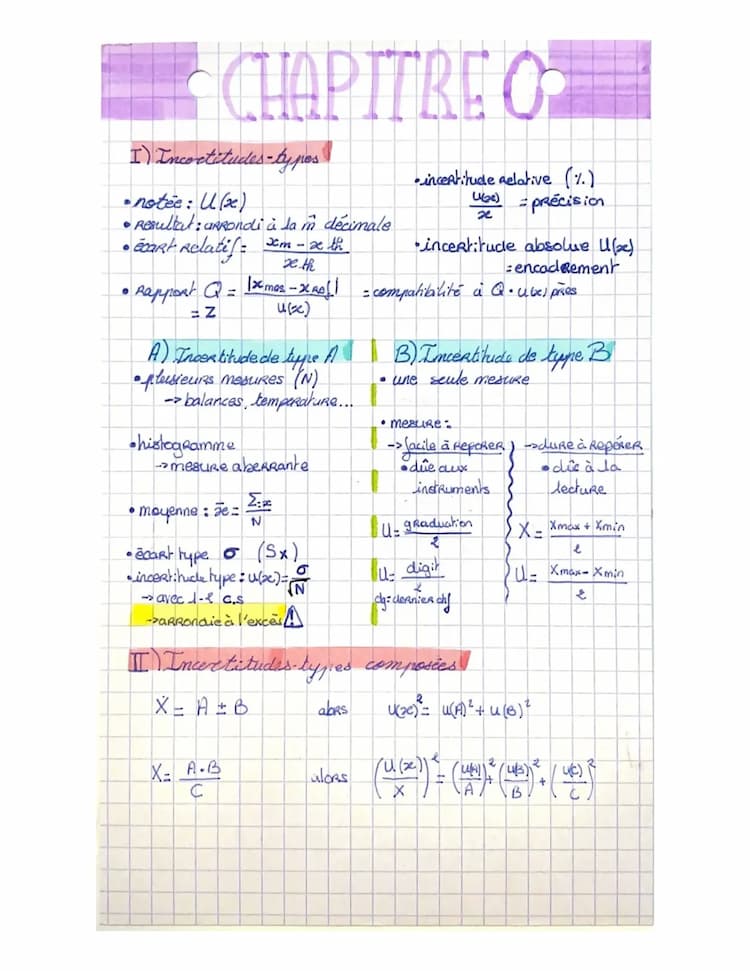 CHAPITRE 0
I) Incertitudes-types
• notée : U(x)
• Résultat : arrondi à la m̂ décimale
• écart relatif = (xm - x th) / x th
• Rapport Q = |x mes - x Ref| / U(x) = compatibilité à Q · u(x) près
= Z
• incertitude relative (%)
U(x) / x = précision
• incertitude absolue U(x)
= encadrement
A) Incertitude de type A
• plusieurs mesures (N)
-> balances, température...
• histogramme
-> mesure aberrante
• moyenne : x̄ = Σx / N
• écart type σ (Sx)
• incertitude type : u(x) = σ / √N
-> avec 1-2 C.S
-> arrondie à l'excès ⚠
B) Incertitude de type B
• une seule mesure
• mesure :
-> facile à repérer
• dûe aux
instruments
U = graduation / 2
U = digit / 2
dg = dernier chf
-> dure à repérer
• dûe à la
lecture
X = (Xmax + Xmin) / 2
U = (Xmax - Xmin) / 2
II) Incertitudes-types composées
X = A ± B alors u(x)² = u(A)² + u(B)²
X = A·B / C alors (U(x) / X)² = (u(A) / A)² + (u(B) / B)² + (u(C) / C)²